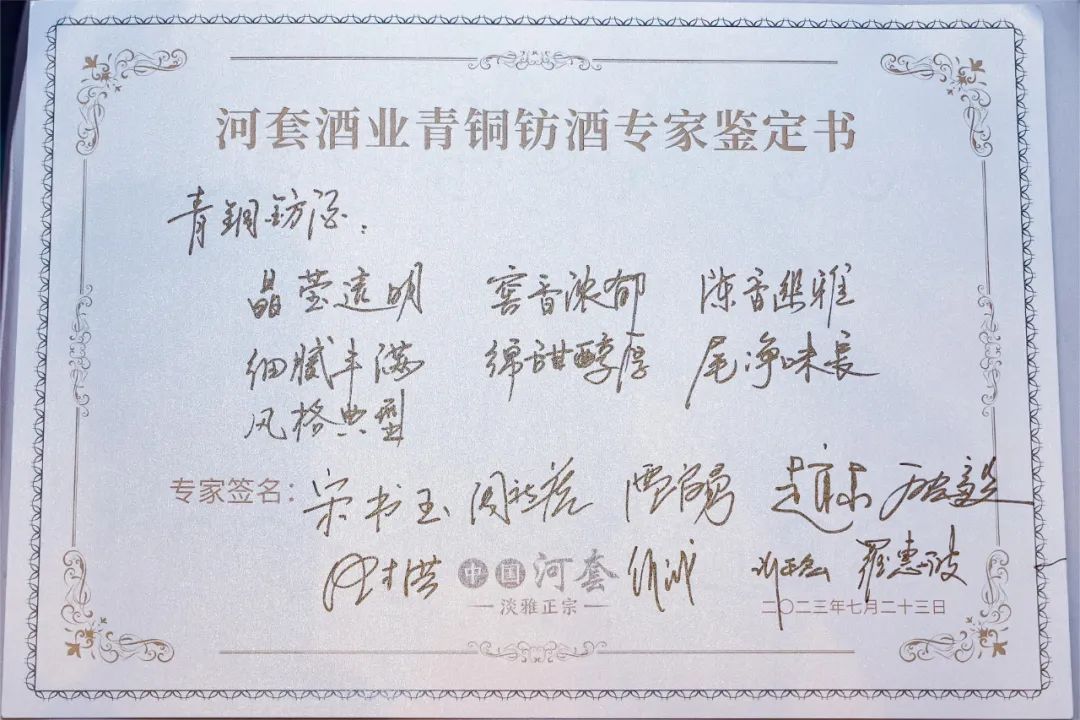 河套酒业青铜钫酒专家鉴定书
青铜钫酒：
晶莹透明 窖香浓郁 陈香幽雅
细腻丰满 绵甜醇厚 尾净味长
风格典型
专家签名：宋书玉
中国河套 罗惠波
淡雅正宗
二〇二三年七月二十三日